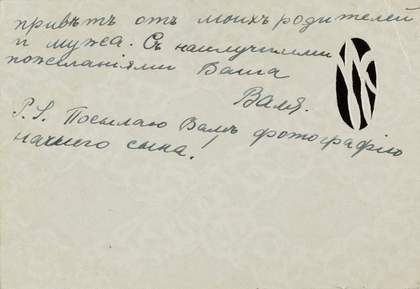 привѣтъ отъ моихъ родителей
и мужа. Съ наилучшими
пожеланіями Ваша
Валя.
P.S. Посылаю Вамъ фотографію
нашего сына!